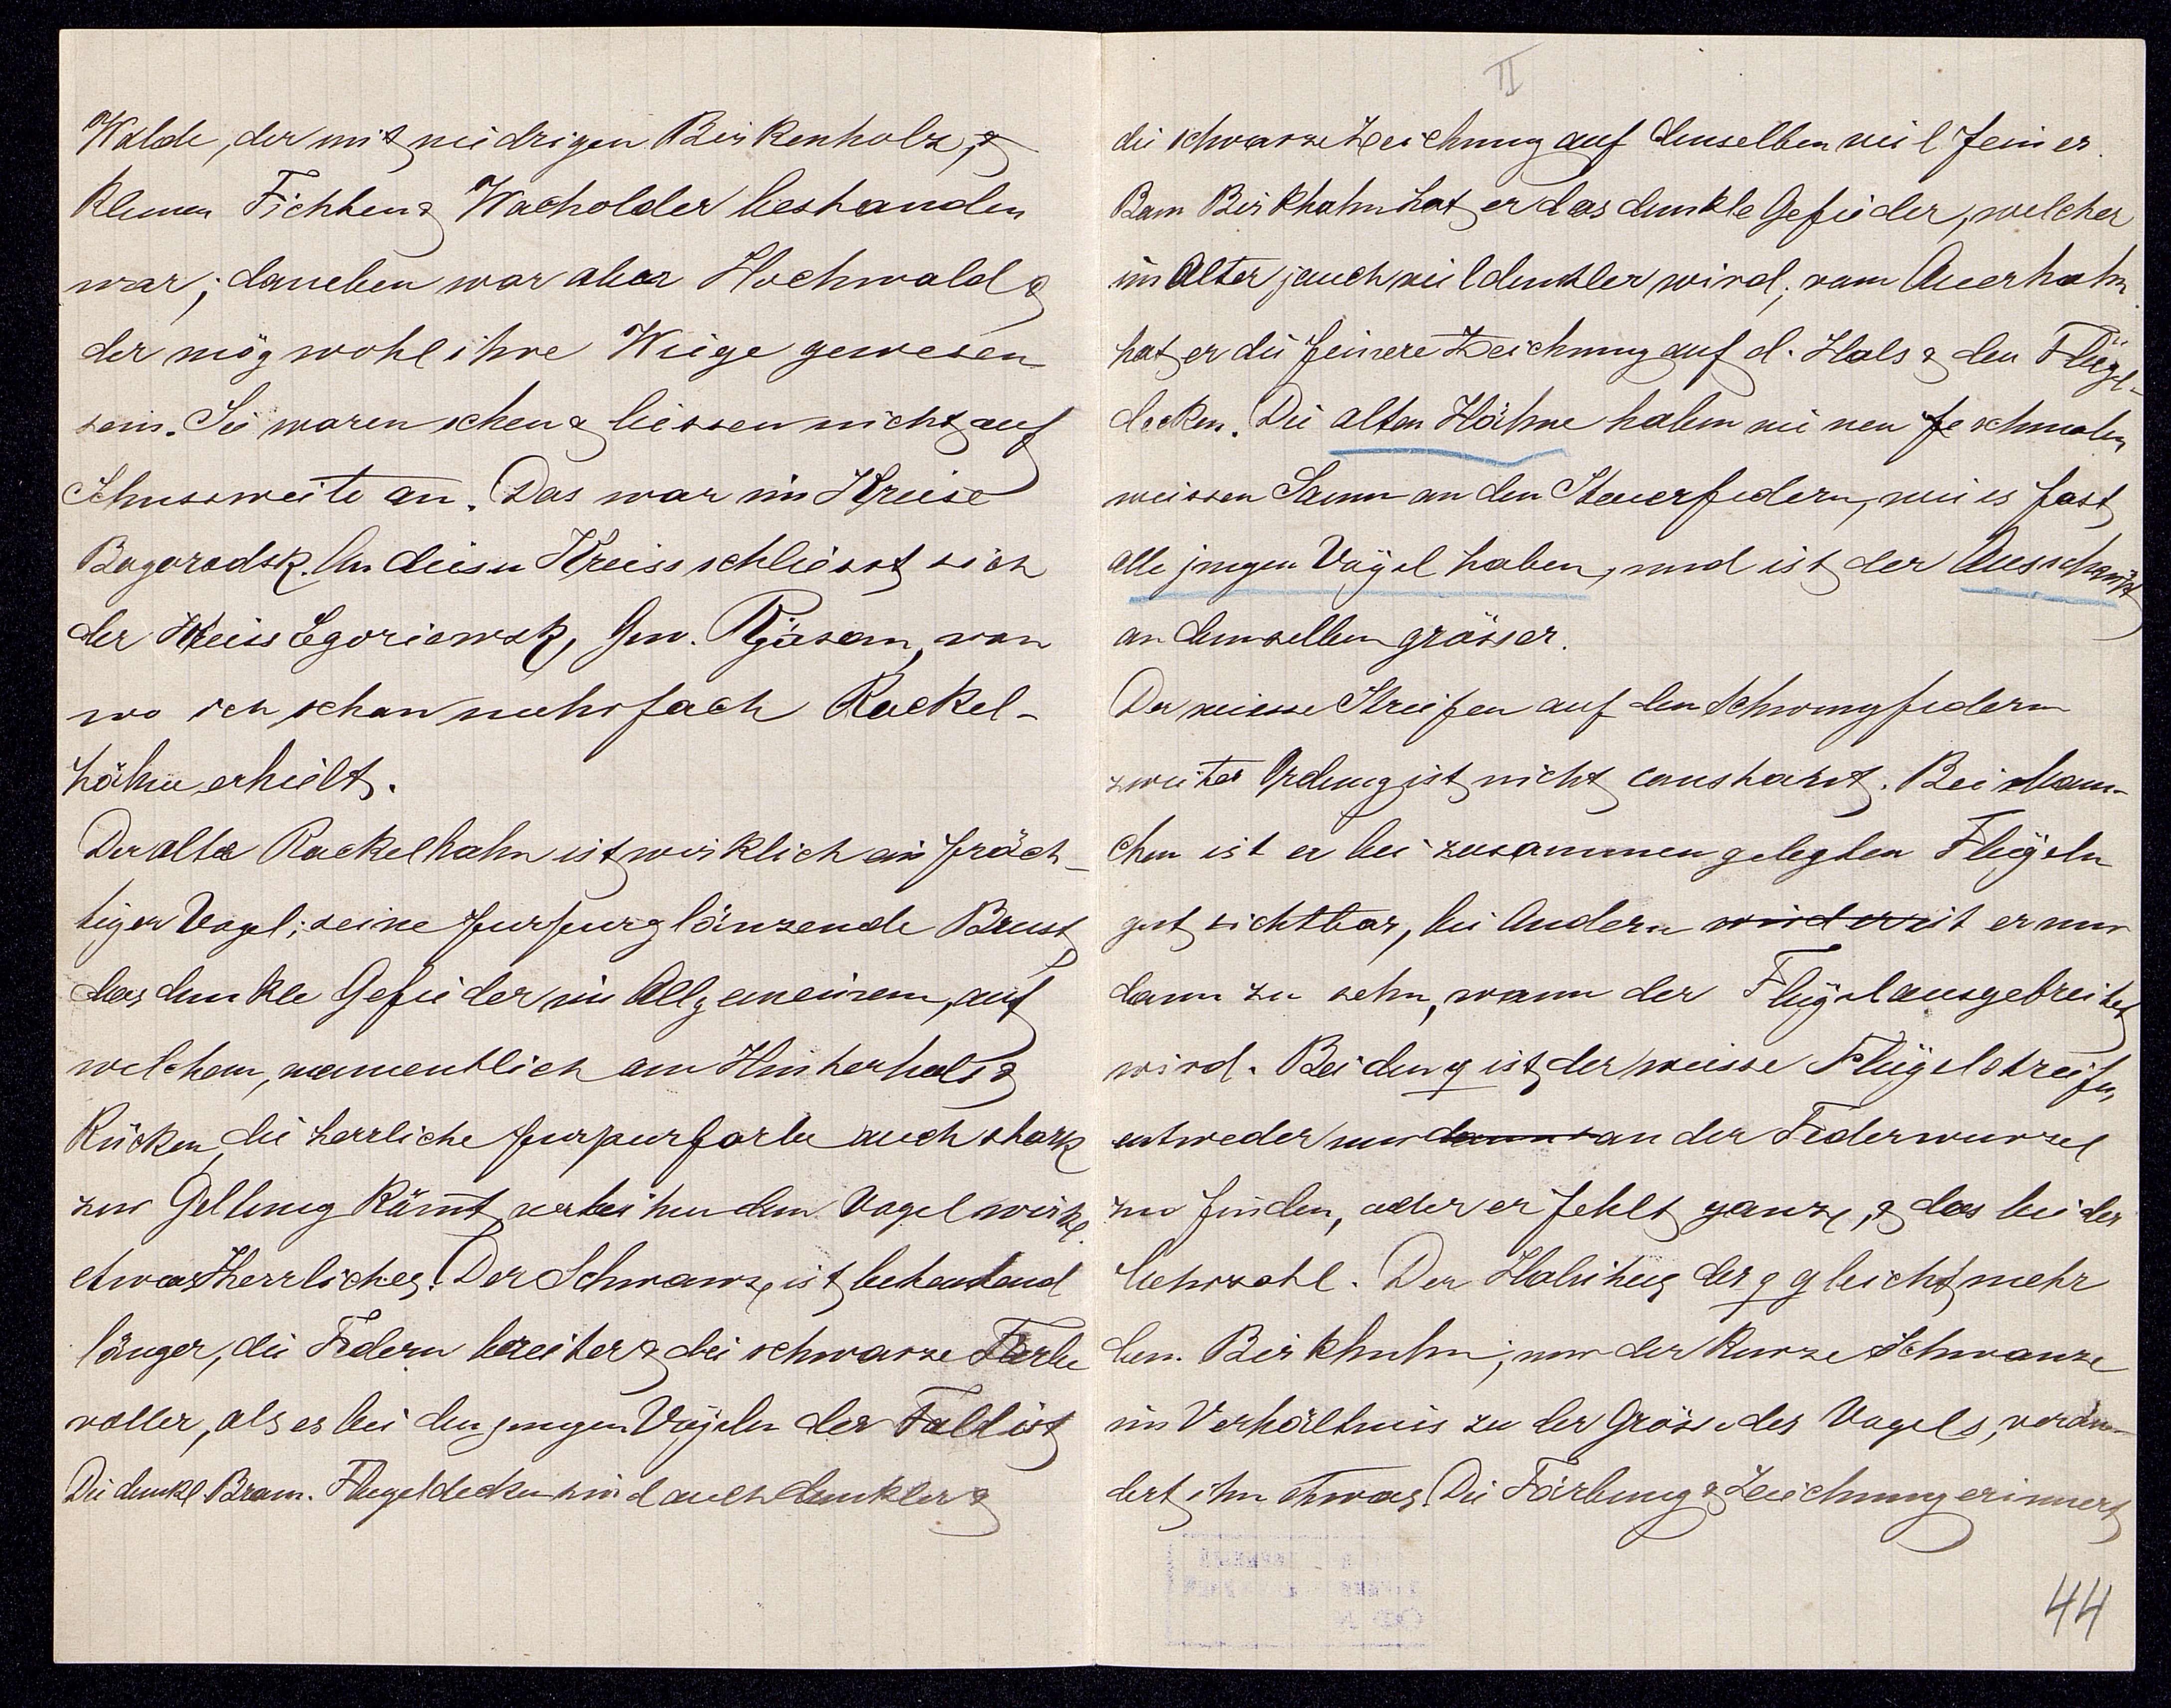 Walde, der mit niedrigen Birkenholz, &
kleinen Fichten & Wacholder bestanden
war; daneben war aber Hochwald &
der mög wohl ihre Wiege gewesen
sein. Sie waren scheu & liessen nicht auf
Schussweite an. Das war im Kreise
Bogorodsk. An diesen Kreis schliesst sich
der Kreiss Egoriewsk, Gouv. Rjäsan, von
wo ich schon mehrfach Rackel-
hähne erhielt.
Der alte Rackelhahn ist wirklich ein präch-
tiger Vogel; seine purpurglänzende Brust,
das dunkle Gefieder im Allgemeinem, auf
welchem, namentlich am Hinterhals &
Rücken, die herrliche purpurfarbe auch stark
zur Geltung kömt, verleihen dem Vogel wirkl.
etwas Herrliches. Der Schwanz ist bedeutend
länger, die Federn breiter & die schwarze Farbe
voller, als es bei den jungen Vögeln der Fall ist
Die dunkl. Braun. Flügeldecken sind auch dunkler &
II
die schwarze Zeichnung auf denselben viel feiner.
Vom Birkhahn hat er das dunkle Gefieder, welcher
im Alter ja auch viel dunkler wird; vom Auerhahn
hat er die feinere Zeichnung auf d. Hals & den Flügel-
decken. Die alten Hähne haben nie nen schmalen
weissen Saum an den Steuerfedern, wie es fast
alle jungen Vögel haben, und ist der Ausschnitt
an demselben grösser.
Der weisse Streifen auf den Schwungfedern
zweiter Ordnung ist nicht constant. Bei Man-
chen ist er bei zusammengelegten Flügeln
gut sichtbar, bei Andern wird er ist er nur
dann zu sehn, wann der Flügel ausgebreitet
wird. Bei den ♀ ist der weisse Flügelstreifen
entweder nur an der Federwurzel
zu finden, oder er fehlt ganz, & das bei der
Mehrzahl. Der Habitus der ♀ gleicht mehr
dem Birkhuhn; nur der kurze Schwanz
im Verhältnis zu der Grösse des Vogels, verän-
dert ihn etwas. Die Färbung & Zeichnung erinnert
44